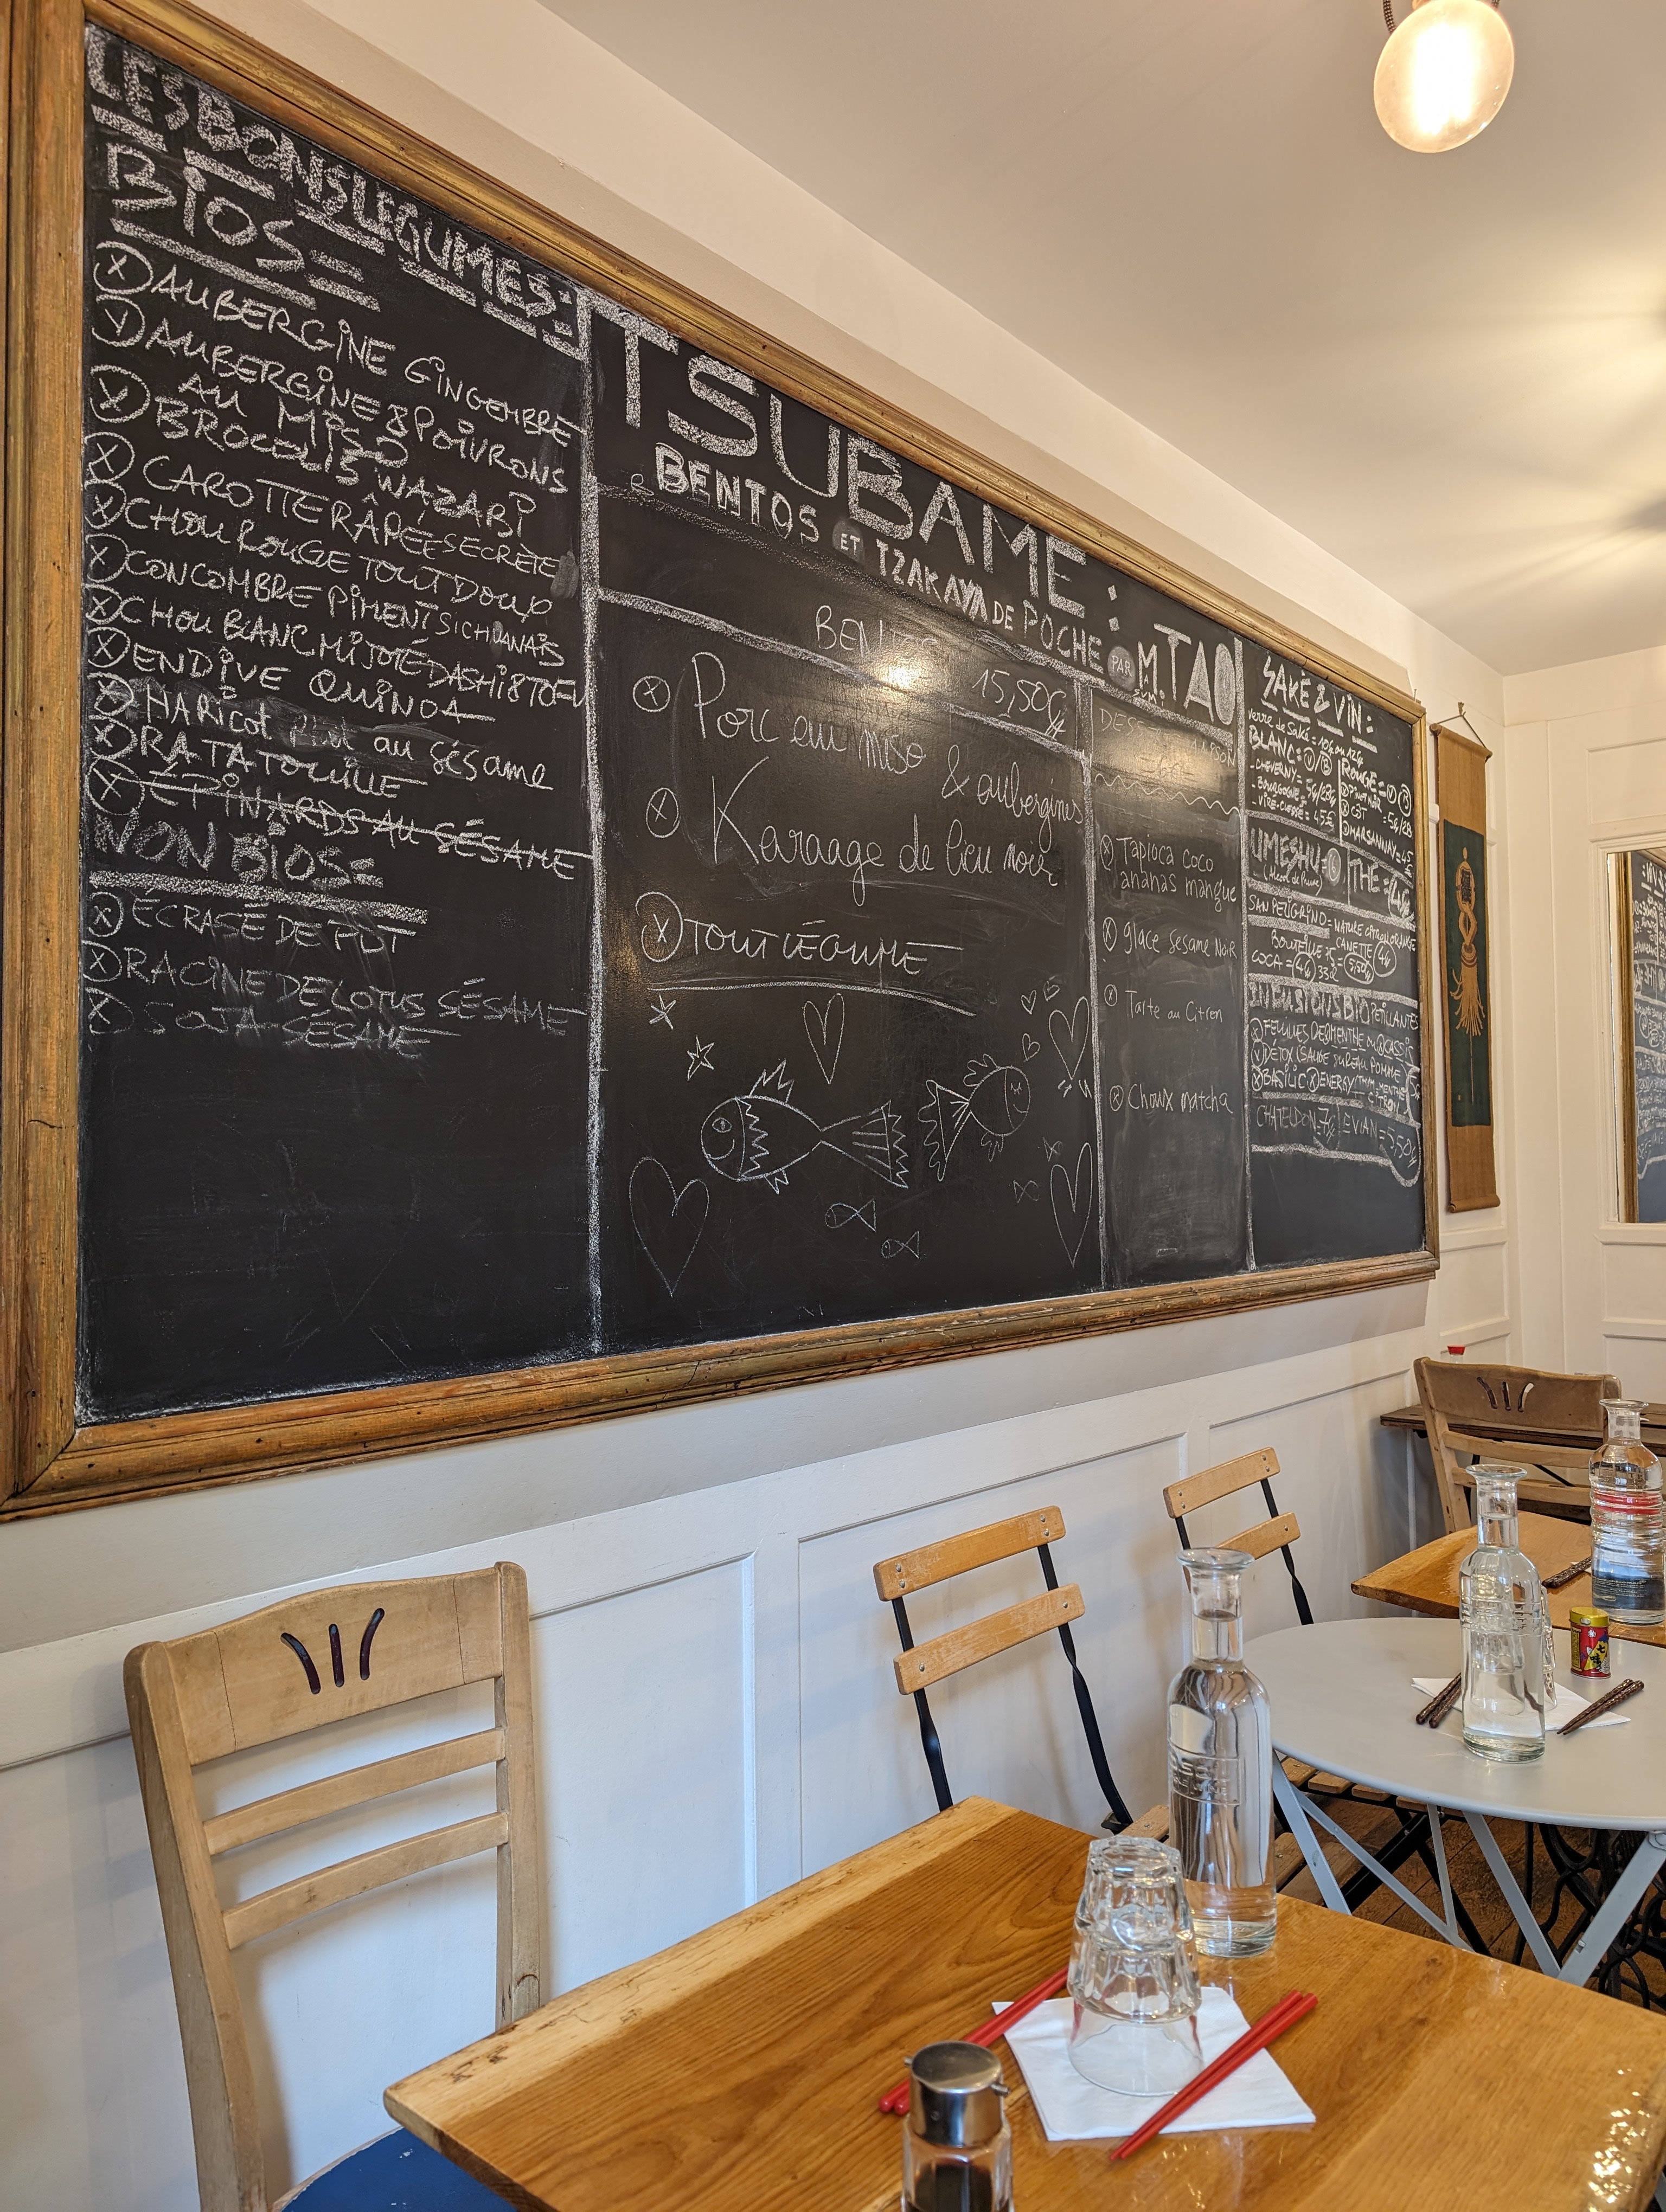 LES BONS LEGUMES:
BIOS=
AUBERGINE GINGEMBRE
AUBERGINE & POIVRONS
AU MISO
BROCOLIS WAZABI
CAROTTE RÂPÉE SECRÈTE
CHOU ROUGE TOUT DOUX
CONCOMBRE PIMENT SICHUANAIS
CHOU BLANC MIJOTÉ DASHI & TOFU
ENDIVE QUINOA
HARICOT au sésame
RATATOUILLE
ÉPINARDS AU SÉSAME
NON BIOS=
ÉCRASÉ DE PDT
RACINE DE LOTUS SÉSAME
SOJA SÉSAME
TSUBAME:
BENTOS ET IZAKAYA DE POCHE PAR M. TAO
BENTOS 15,50€
Porc au miso & aubergines
Karaage de lieu noir
TOUT LÉGUME
MAISON
Tapioca coco
ananas mangue
glace sésame Noir
Tarte au Citron
Choux matcha
SAKÉ & VIN:
verre de Saké = 10€ ou 12€
BLANC=
-CHEVERNY=
-BOURGOGNE=
-VIRÉ-CLESSÉ= 45€
ROUGE=
PINOT NOIR
MARSANNAY=45
UMESHU=6
(Alcool de Prune)
THÉ=4€
SAN PELIGRINO= NATURE CITRON ORANGE
BOUTEILLE CANETTE 4€
COCA=4€ 33cl
INFUSIONS BIO PÉTILLANTES
FEUILLES DE MENTHE CASSIS
DÉTOX (SAUGE SUREAU POMME
BASILIC ENERGY THYM-MENTHE
CHATELDON=7€ EVIAN=5,50€